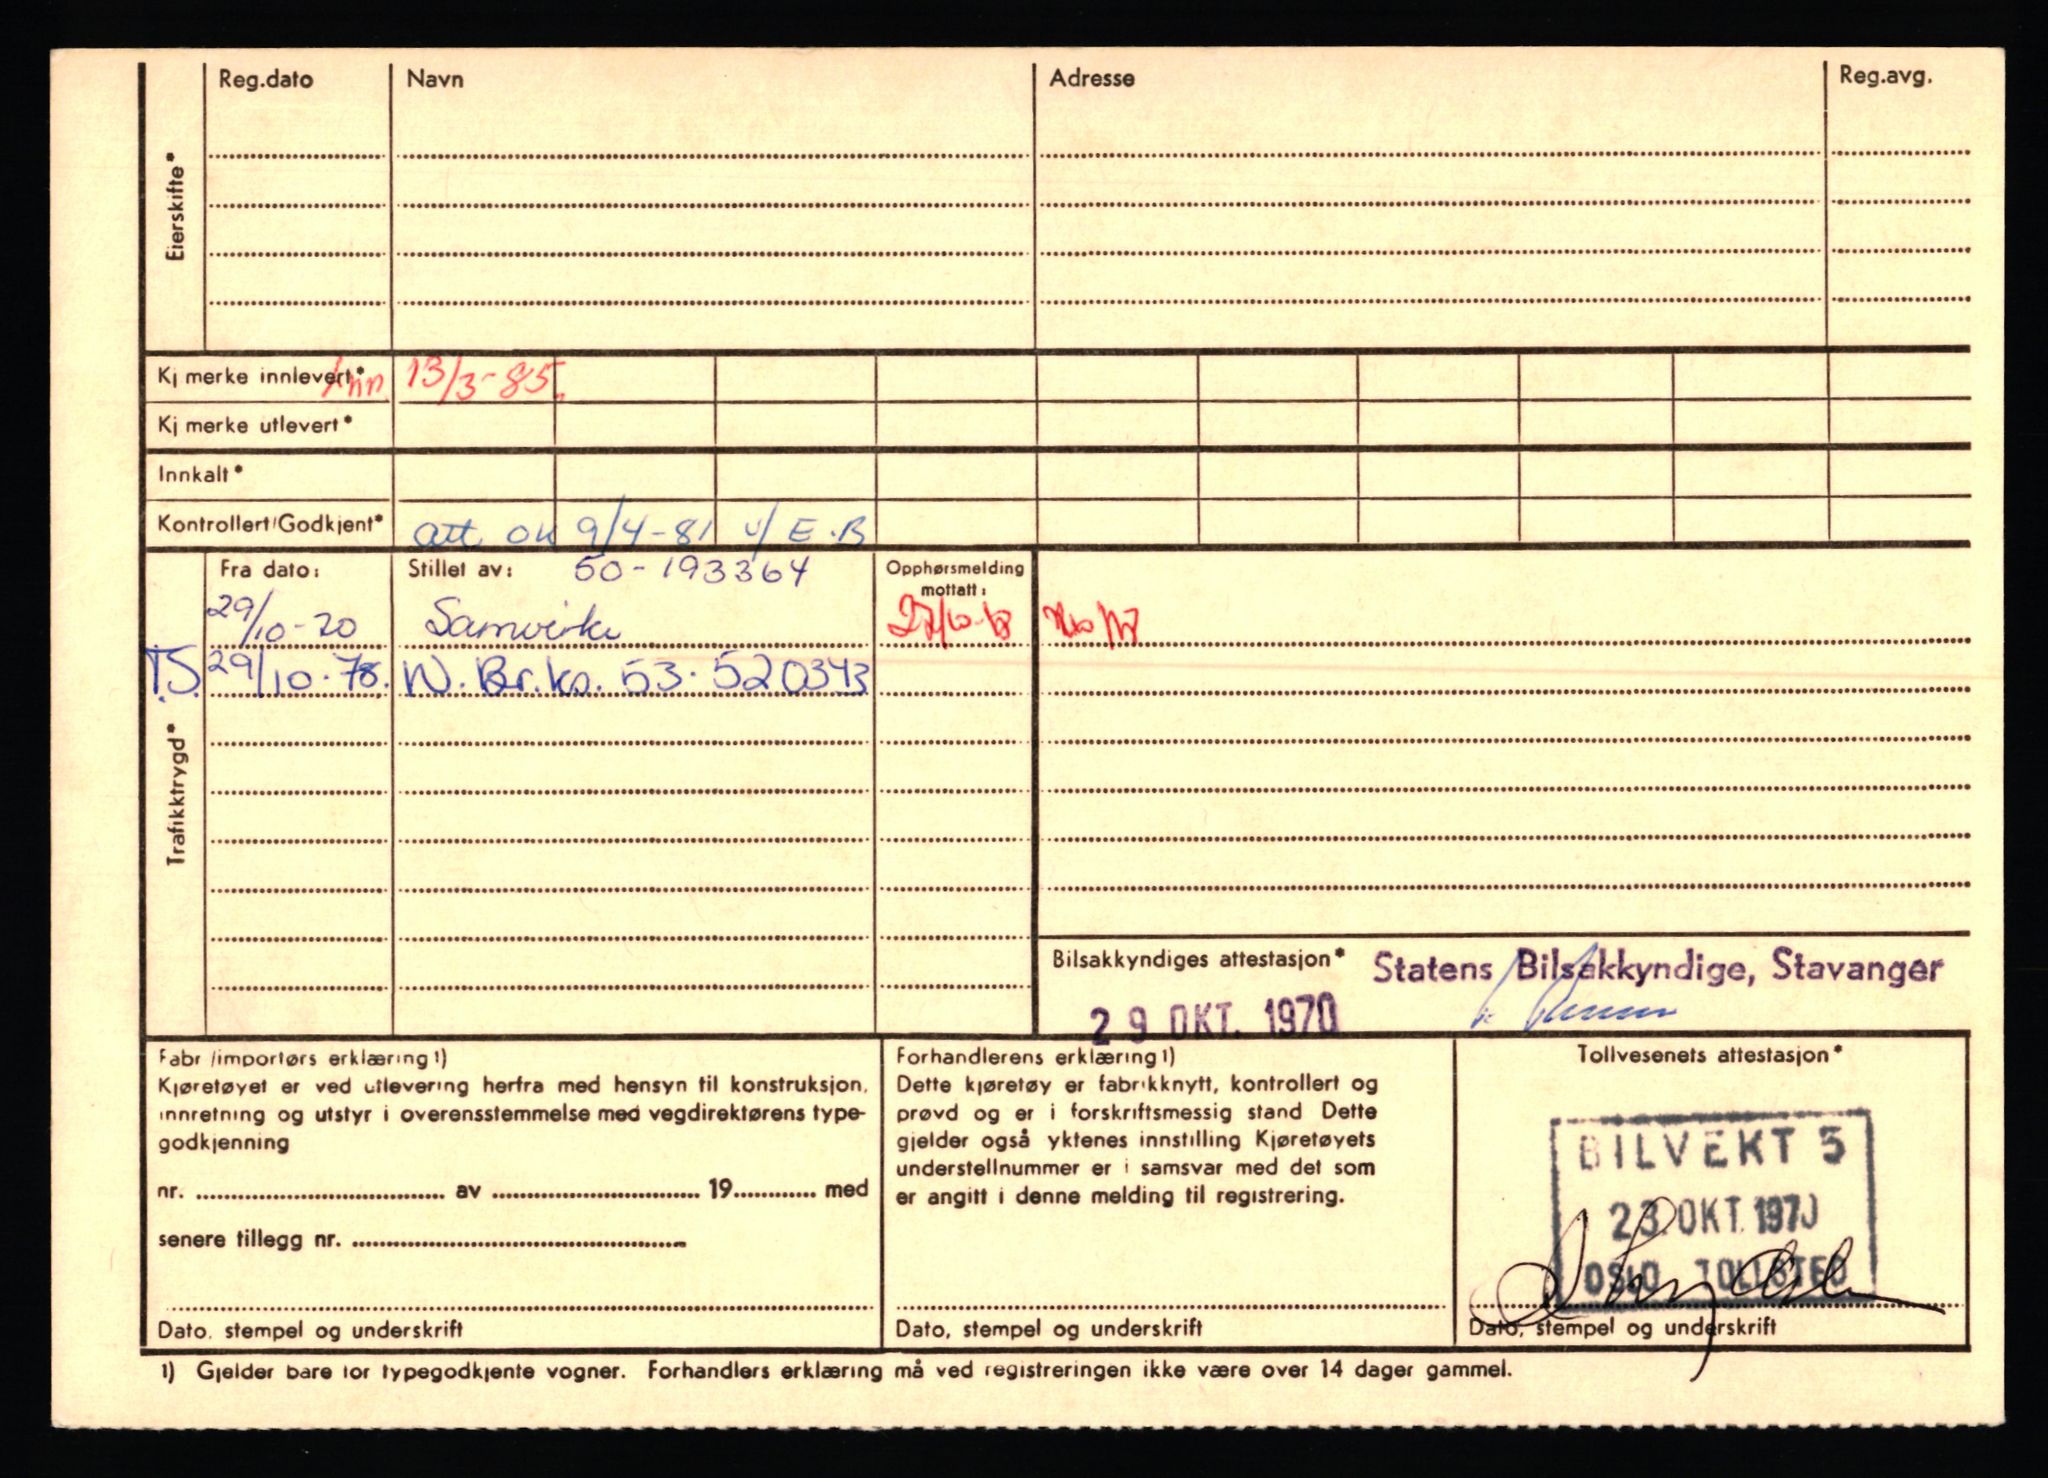 Reg.dato Navn Adresse Reg.avg.
Eierskifte*
Kj merke innlevert* Inn 13/3-85.
Kj merke utlevert*
Innkalt*
Kontrollert/Godkjent* att ok 9/4-81 v/ E.B
Fra dato: Stillet av: 50-193364 Opphørsmelding
mottatt:
29/10-70 Samvirke
T.S. 29/10.78. N. Br.ko. 53.520343
Trafikktrygd*
Bilsakkyndiges attestasjon* Statens Bilsakkyndige, Stavanger
29 OKT. 1970
Fabr /importørs erklæring 1)
Kjøretøyet er ved utlevering herfra med hensyn til konstruksjon,
innretning og utstyr i overensstemmelse med vegdirektørens type-
godkjenning
nr. .......... av .......... 19.......... med
senere tillegg nr. ..........
Dato, stempel og underskrift
Forhandlerens erklæring 1)
Dette kjøretøy er fabrikknytt, kontrollert og
prøvd og er i forskriftsmessig stand Dette
gjelder også yktenes innstilling Kjøretøyets
understellnummer er i samsvar med det som
er angitt i denne melding til registrering.
Dato, stempel og underskrift
Tollvesenets attestasjon*
BILVEKT 5
23.OKT.1970
OSLO TOLLSTED
Dato, stempel og underskrift
1) Gjelder bare for typegodkjente vogner. Forhandlers erklæring må ved registreringen ikke være over 14 dager gammel.